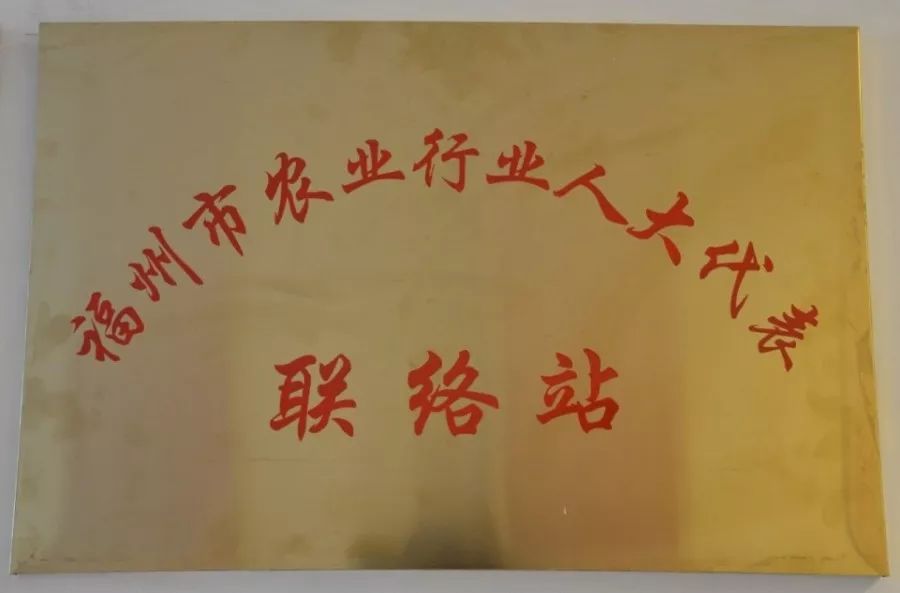 福州市农业行业人大代表
联络站